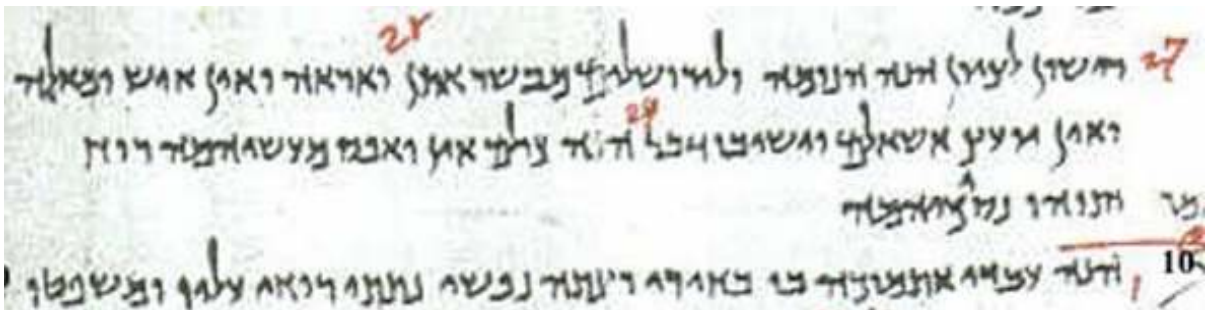 27 רישון לציון הנה הנומה ולירושלים מבשר אתן 28 ואראה ואין איש ומאלה
ואין יועץ אשאלם וישיבו דבר 29 הנה כולם אין ואפס מעשיהמה רוח
ותוהו נסכיהמה
10 1 הנה עבדי אתמוכה בו בחירי רצתה נפשי נתתי רוחי עליו ומשפטו